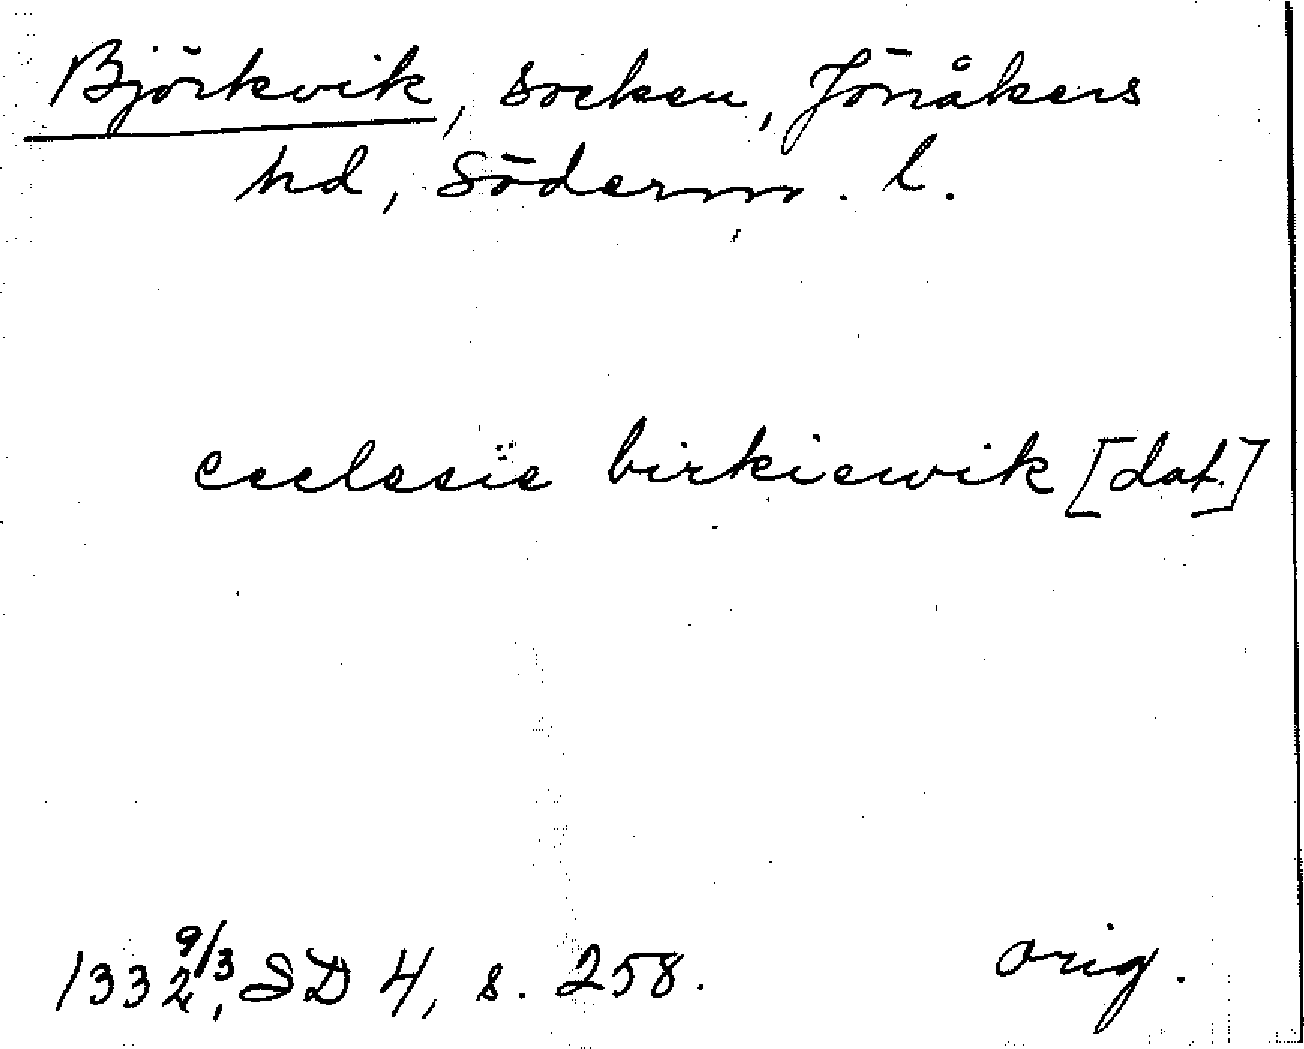 Björkvik, socken, Jönåkers
hd, Söderm. l.
ecclesie birkiewik [dat.]
1332 9/3, SD 4, s. 258. orig.